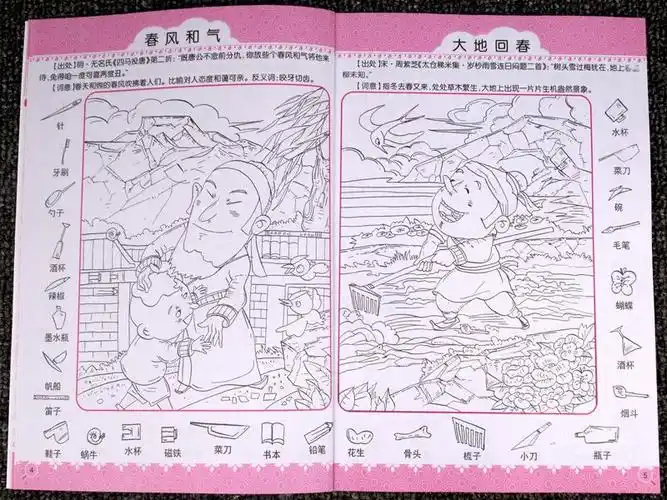 春风和气
【出处】明·无名氏《四马投唐》第二折:"既唐公不念前分仇,你放些个春风和气将他来
待,免得咱一度可喜两度丑。"
【词意】春天和煦的春风吹拂着人们。比喻对人态度和蔼可亲。反义词:咬牙切齿。
针
牙刷
勺子
酒杯
辣椒
墨水瓶
帆船
笛子
鞋子
蜗牛
水杯
磁铁
菜刀
书本
铅笔
4
大地回春
【出处】宋·周紫芝《太仓稊米集·岁杪雨雪连日闷题二首》:"树头雪过梅犹在,地上
柳未知。"
【词意】指冬去春又来,处处草木繁生,大地上出现一片片生机盎然景象。
水杯
菜刀
碗
毛笔
蝴蝶
酒杯
烟斗
花生
骨头
梳子
小刀
瓶子
5